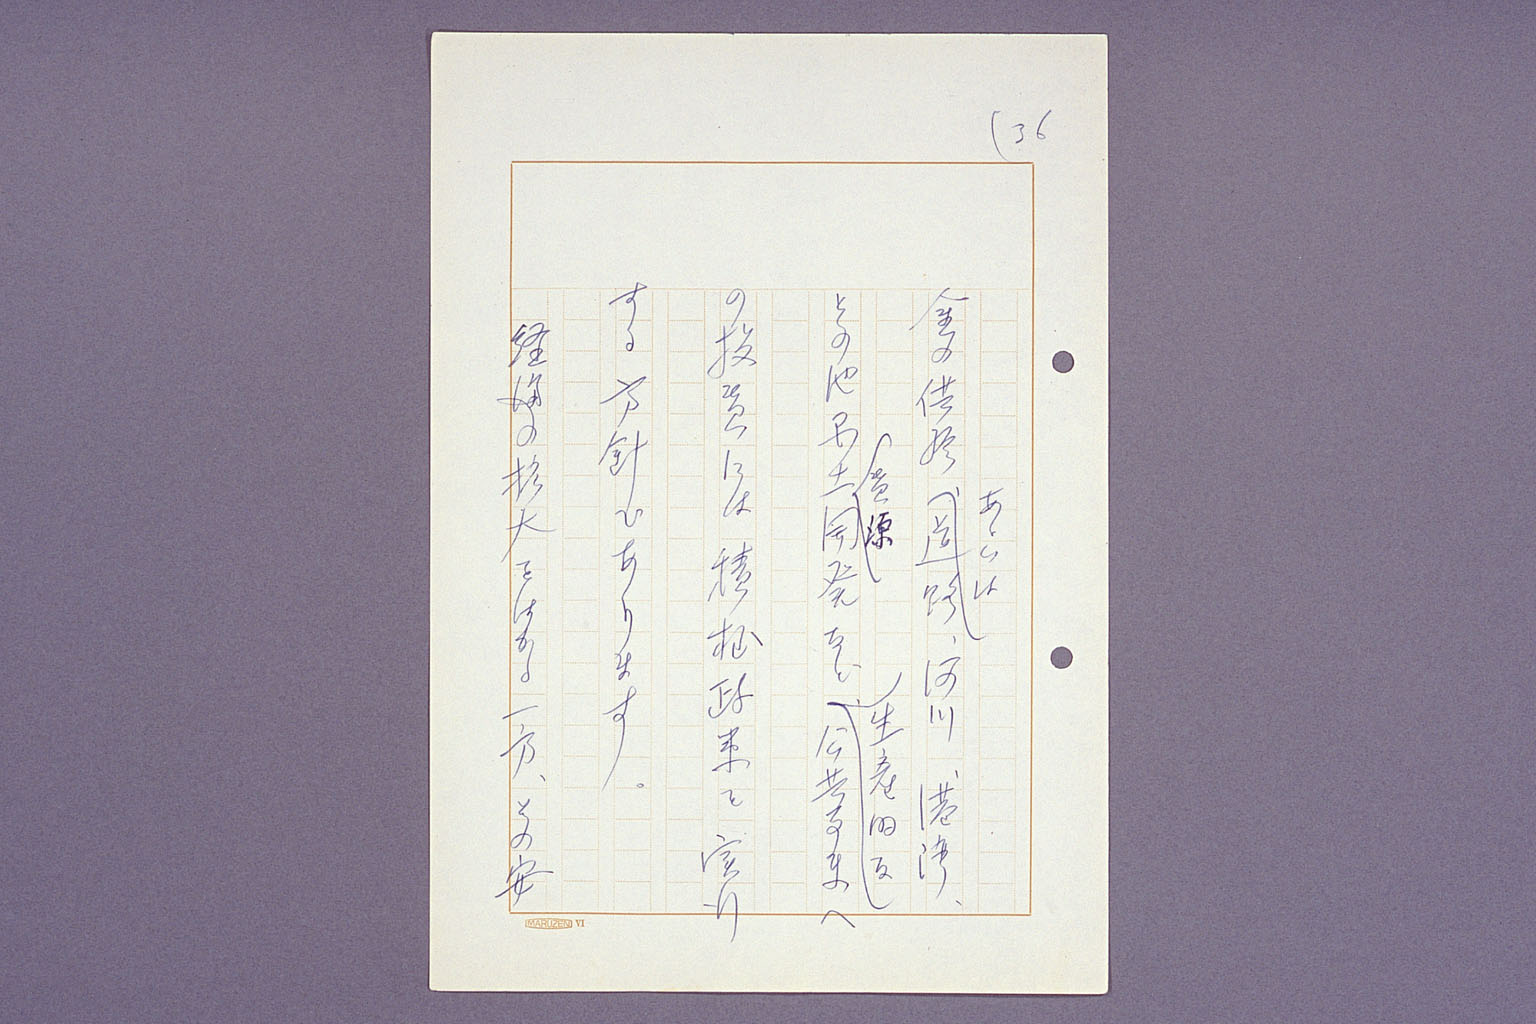 (36
あるいは
金の供給、道路、河川、港湾、
資源
その他国土開発など、公共事業へ
生産的な
の投資には積極政策を実行
する方針であります。
経済の拡大をはかる一方、その安
MARUZEN VI